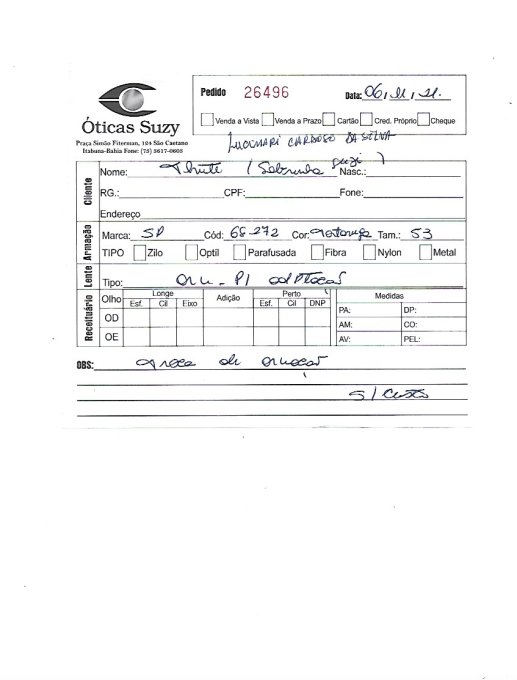 Óticas Suzy
Praça Simão Fiterman, 124 São Caetano
Itabuna-Bahia Fone: (73) 3617-0605
Pedido 26496 Data: 06, 11, 21.
Venda a Vista Venda a Prazo Cartão Cred. Próprio Cheque
CARDOSO DA SILVA
Cliente
Nome: (Sobrinha Suzi) Nasc.:
RG.: CPF: Fone:
Endereço
Armação
Marca: SP Cód: 68-272 Cor: Tartaruga Tam.: 53
TIPO Zilo Optil Parafusada Fibra Nylon Metal
Lente
Tipo: P/
Receituário
Olho Longe Adição Perto Medidas
Esf. Cil Eixo Esf. Cil DNP
OD PA: DP:
AM: CO:
OE AV: PEL:
OBS: Troca de armação
S/ Custo